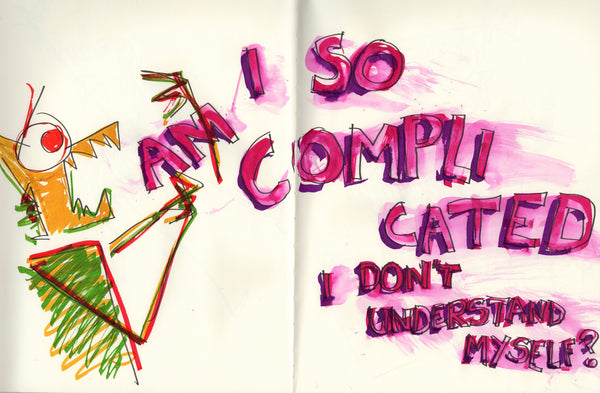 AM I SO
COMPLI
CATED
I DON'T
UNDERSTAND
MYSELF?